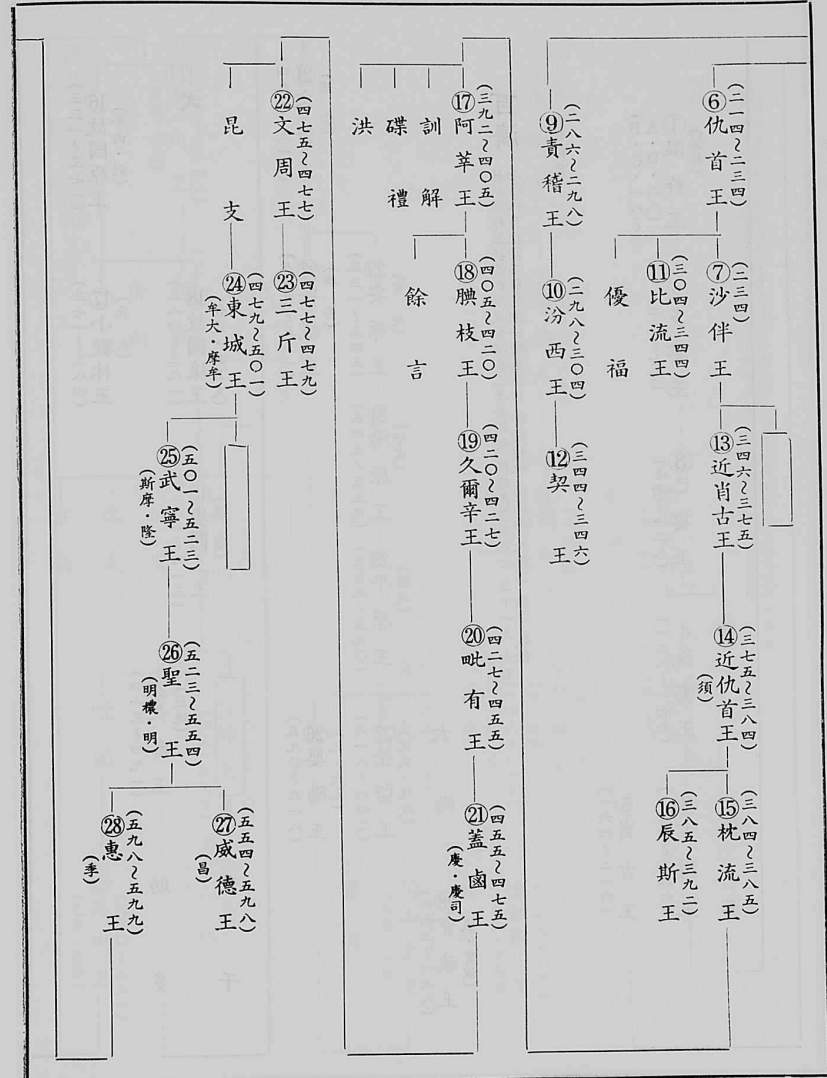 ⑥仇首王
(二一四〜二三四)
⑦沙伴王
(二三四)
⑪比流王
(三〇四〜三四四)
優福
⑬近肖古王
(三四六〜三七五)
⑭近仇首王
(三七五〜三八四)
(須)
⑮枕流王
(三八四〜三八五)
⑯辰斯王
(三八五〜三九二)
⑨責稽王
(二八六〜二九八)
⑩汾西王
(二九八〜三〇四)
⑫契王
(三四四〜三四六)
⑰阿莘王
(三九二〜四〇五)
訓解
碟禮
洪
⑱腆枝王
(四〇五〜四二〇)
餘言
⑲久爾辛王
(四二〇〜四二七)
⑳毗有王
(四二七〜四五五)
㉑蓋鹵王
(四五五〜四七五)
(慶・慶司)
㉒文周王
(四七五〜四七七)
㉓三斤王
(四七七〜四七九)
昆支
㉔東城王
(四七九〜五〇一)
(牟大・摩牟)
㉕武寧王
(五〇一〜五二三)
(斯摩・隆)
㉖聖王
(五二三〜五五四)
(明襛・明)
㉗威德王
(五五四〜五九八)
(昌)
㉘惠王
(五九八〜五九九)
(季)